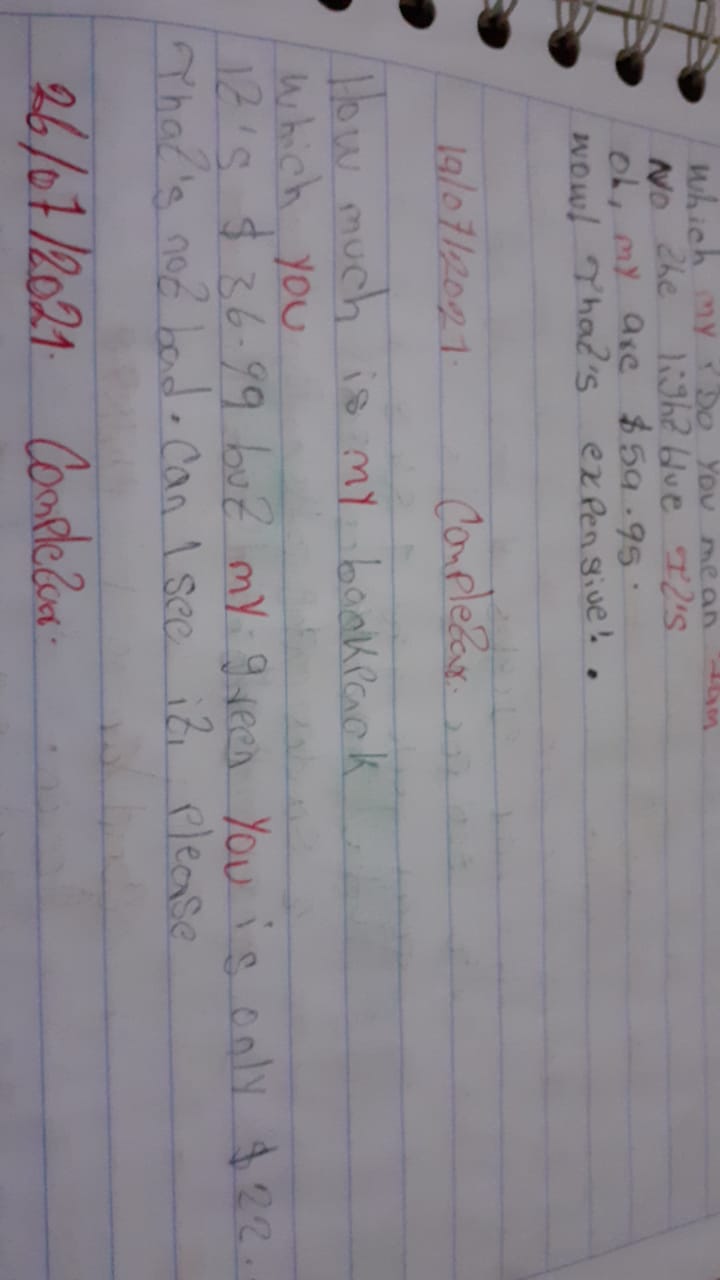 Which my. Do you mean
No the light blue It's
oh, my are $59.95.
wow! That's expensive!.
19/07/2021. Completar.
How much is my backpack
Which you
It's $ 36.99 but my green you is only $22.
That's not bad. Can I see it, please
26/07/2021. Completar.